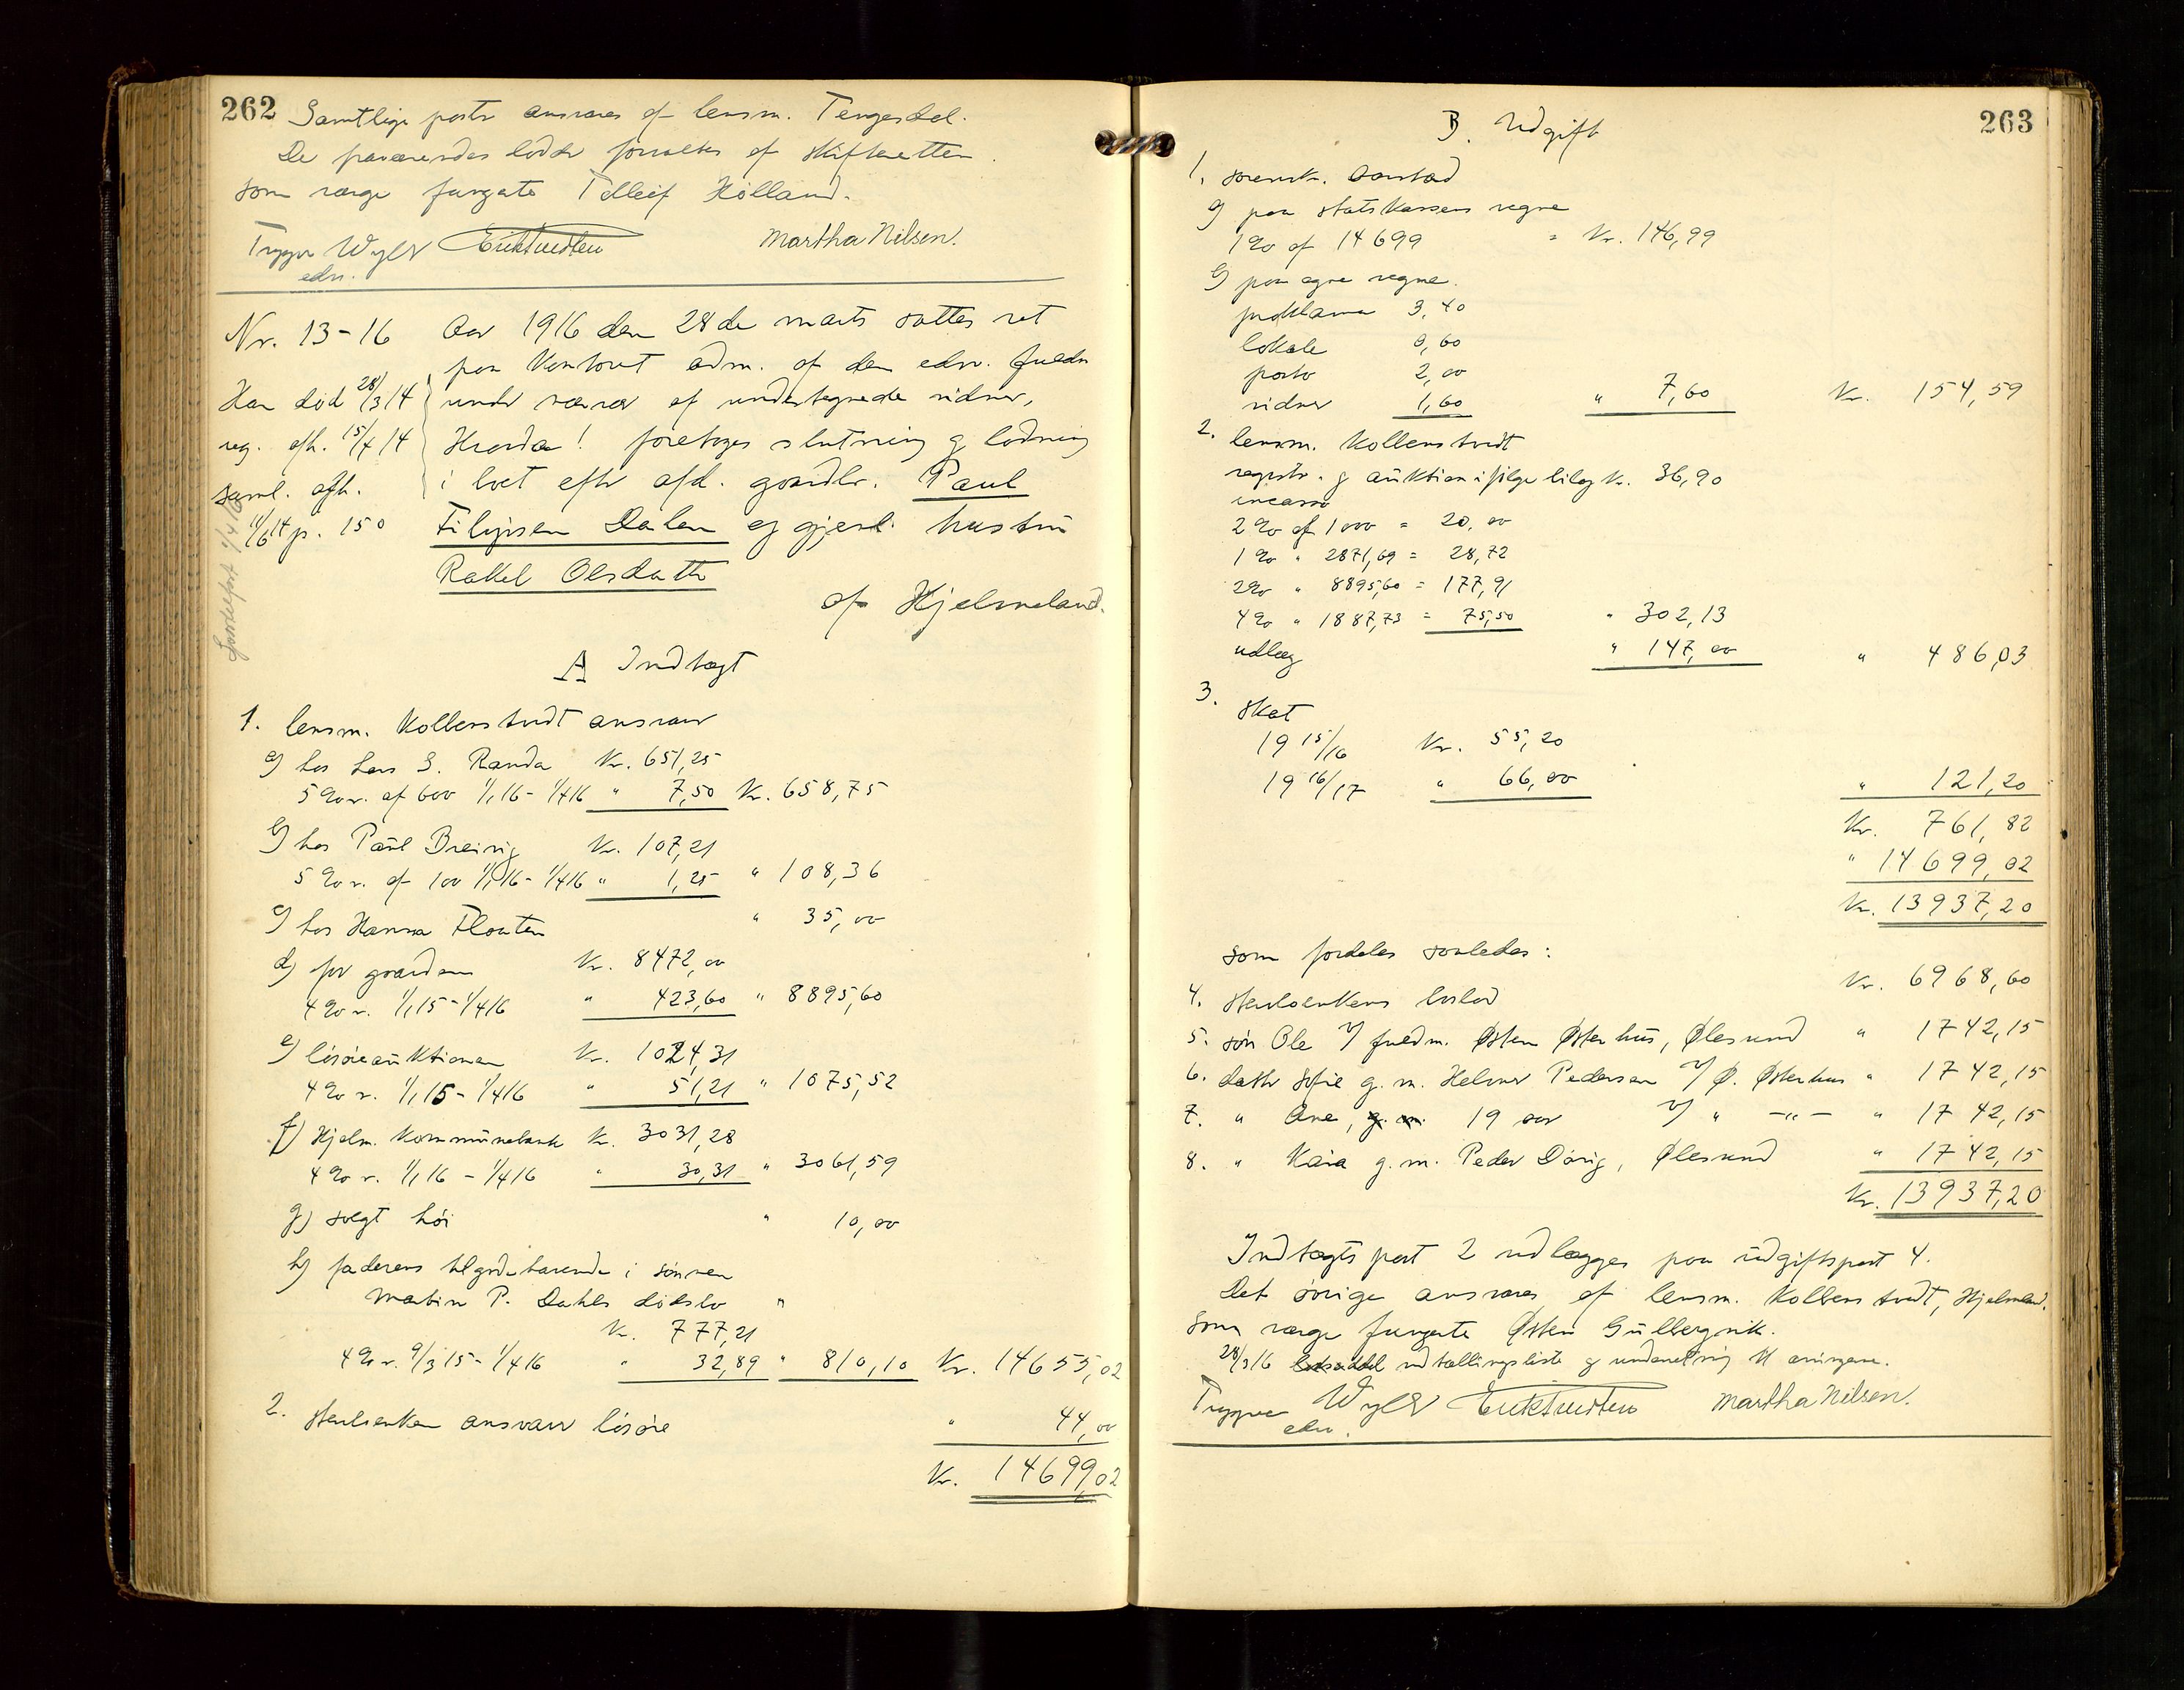 262
Samtlige poster ansvares af lensm. Tengesdal.
De fraværendes lodder forvaltes af skifteretten.
som værge fungerte Tolleif Hölland.
Trygve Wyller
edsv.
Martha Nilsen.
Nr. 13-16
Han död 28/3 14
reg. afh. 15/4 14
saml. afh.
11/6 14 p. 150
Aar 1916 den 28de marts sattes ret
paa kontoret adm. af den edsv. fuldm
under nærvær af undertegnede vidner,
Hvorda! foretages slutning og lodning
i boet efter afd. gaardbr. Paul
Filipsen Dalen og gjenl. hustru
Rakel Olsdatter
af Hjelmeland.
A Indtægt
1. lensm. Kollenstvedt ansvarer
a) hos Lars S. Randa Kr. 651,25
5% r. af 600 1/1 16 - 1/4 16 " 7,50 Kr. 658,75
b) hos Paul Breivig Kr. 107,21
5% r. af 100 1/1 16 - 1/4 16 " 1,25 " 108,36
c) hos Hanna Floaten " 35,00
d) for gaarden Kr. 8472,00
4% r. 1/1 15 - 1/4 16 " 423,60 " 8895,60
e) lösöreauktionen Kr. 1024,31
4% r. 1/1 15 - 1/4 16 " 51,21 " 1075,52
f) Hjelm. Kommunebank Kr. 3031,28
4% r. 1/1 16 - 1/4 16 " 30,31 " 3061,59
g) solgt höi " 10,00
h) faderens tilgodehavende i sönnen
Martin P. Dahls dödsbo "
Kr. 777,21
4% r. 9/3 15 - 1/4 16 " 32,89 " 810,10 Kr. 14655,02
2. Stervenken ansvarer lösöre " 44,00
Kr. 14699,02
263
B. Udgift
1. sorensk. Aarstad
a) paa statskassens regne
1% af 14699 = Kr. 146,99
b) paa egne regne.
proklama 3,40
lokale 0,60
porto 2,00
vidner 1,60 " 7,60 Kr. 154,59
2. lensm. Kollenstvedt
registr. og auktion ifölge bilag Kr. 36,90
incasso
2% af 1000 = 20,00
1% " 2871,69 = 28,72
2% " 8895,60 = 177,91
4% " 1887,73 = 75,50 " 302,13
udlæg " 147,00 " 486,03
3. Skat
19 15/16 Kr. 55,20
19 16/17 " 66,00 " 121,20
Kr. 761,82
" 14699,02
Kr. 13937,20
som fordeles saaledes:
4. Stervenkens boslod Kr. 6968,60
5. sön Ole v/ fuldm. Østen Østerhus, Ølesund " 1742,15
6. datter Sofie g. m. Helmer Pedersen v/ Ø. Østerhus " 1742,15
7. " Ane, g. m. 19 aar v/ " -"- " 1742,15
8. " Kaia g. m. Peder Dörig, Ølesund " 1742,15
Kr. 13937,20
Indtægtspost 2 udlægges paa udgiftspost 4.
Det övrige ansvares af lensm. Kollenstvedt, Hjelmeland.
Som værge fungerte Østen Gullbergvik.
28/3 16 udtællingsliste og underretning til arvingene.
Trygve Wyller
edsv.
Martha Nilsen.